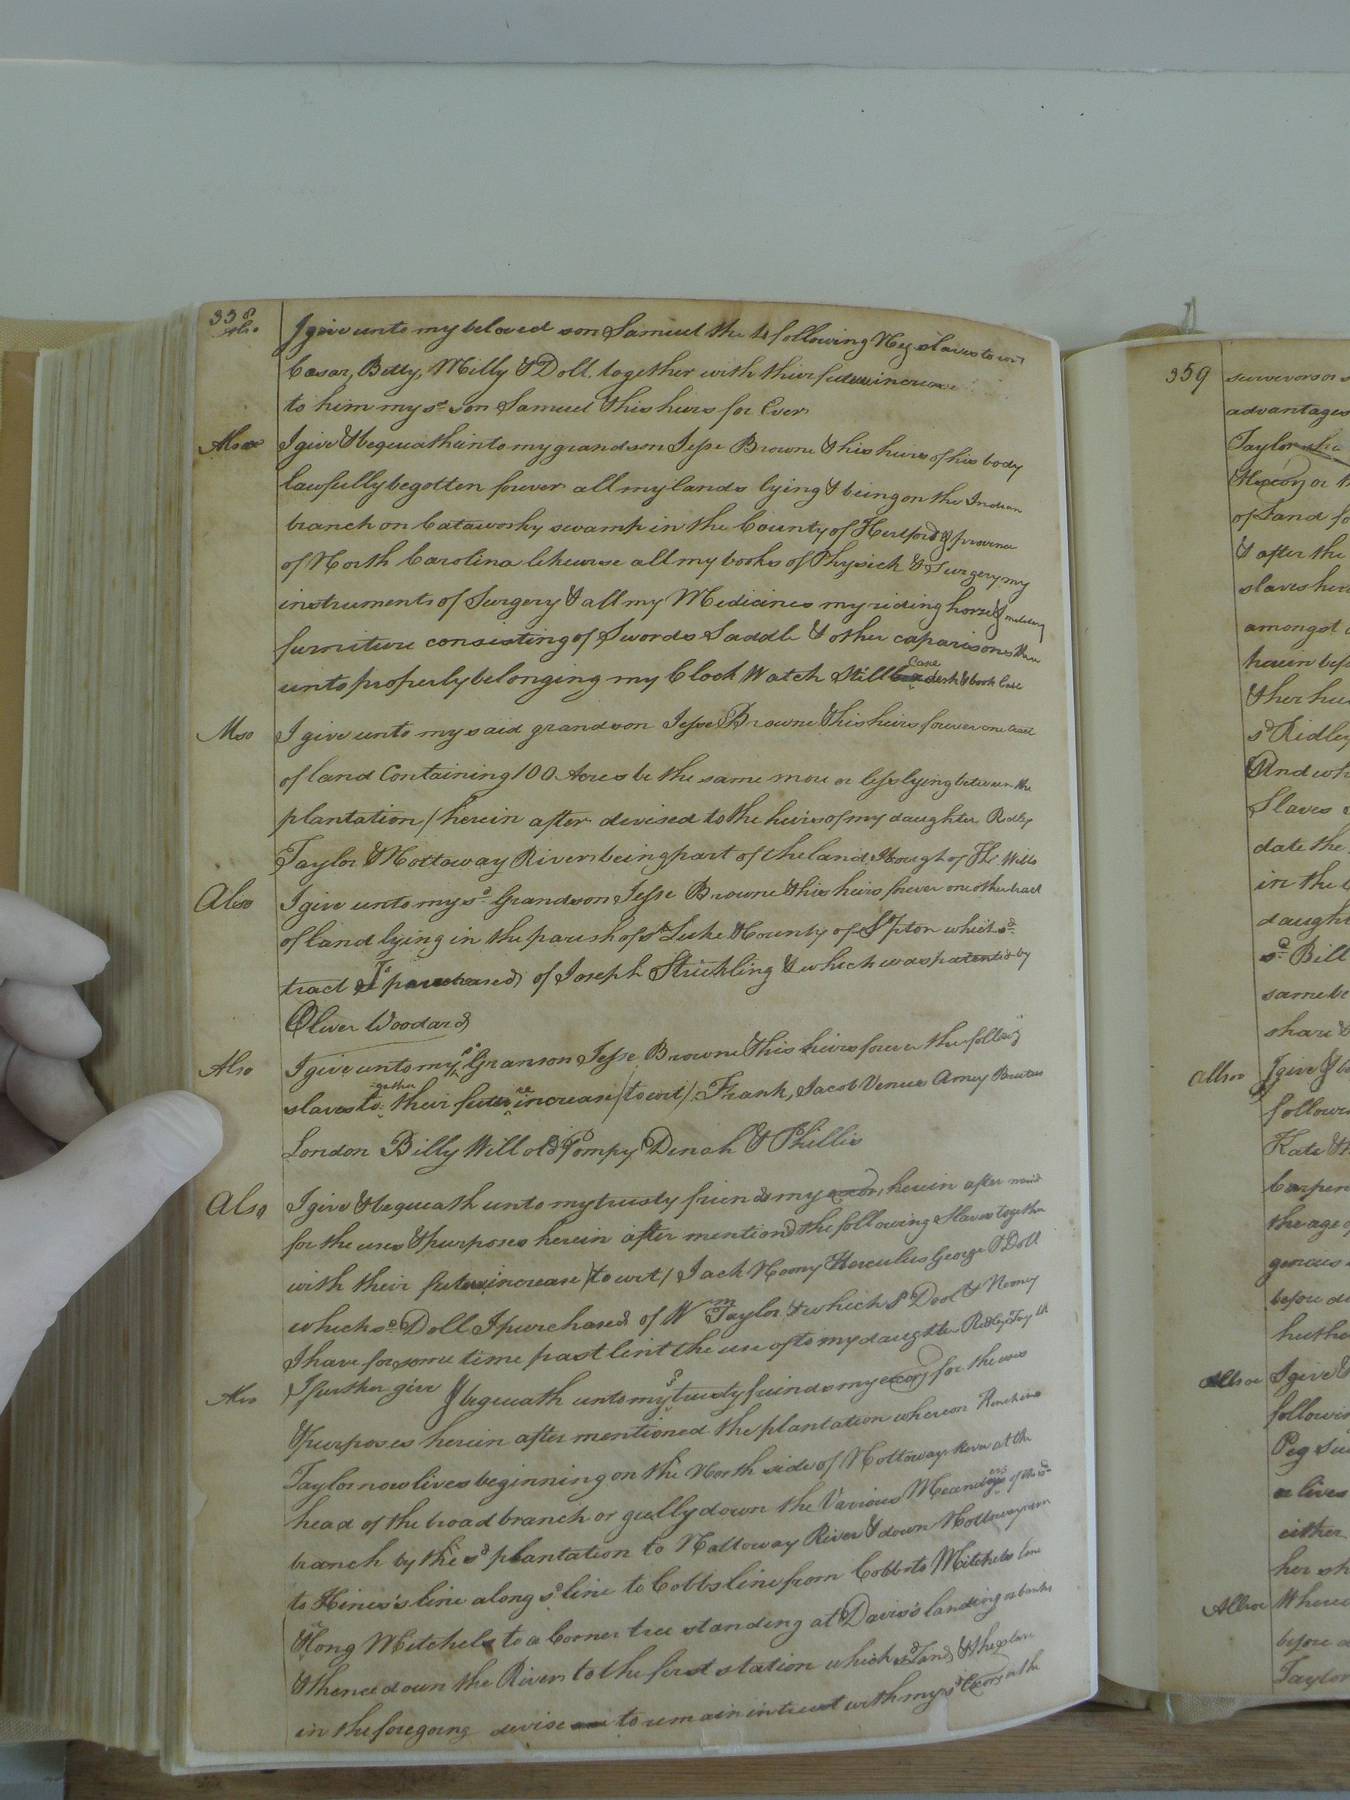 358
Also I give unto my beloved son Samuel the 4 following Neg slaves to wit
Cæsar, Betty, Milly & Doll together with their future increase
to him my sd son Samuel & his heirs for Ever
Also I give & bequeath unto my grandson Jesse Browne & his heirs of his body
lawfully begotten forever all my lands lying & being on the Indian
branch on Catawosky swamp in the County of Hertford & province
of North Carolina likewise all my books of Physick & Surgery my
instruments of Surgery & all my Medicines my riding horse & military
furniture consisting of Swords Saddle & other caparisones there
unto properly belonging my Clock Watch Still Case desk & book Case
Also I give unto my said grandson Jesse Browne & his heirs forever one tract
of land Containing 100 Acres be the same more or less lying between the
plantation / herein after devised to the heirs of my daughter Ridley
Taylor & Nottoway River being part of the land I bough of Ths Wills
Also I give unto my sd Grandson Jesse Browne & his heirs forever one other tract
of land lying in the parish of St Luke & County of S'pton which sd
tract I purchased of Joseph Strickling & which was patentd by
Oliver Woodard
Also I give unto my sd Granson Jesse Browne & his heirs forever the follow'g
slaves together their future increase / to wit / Frank, Jacob Venus Amey Brutus
London Billy Will old Pompy Dinah & Phillis
Also I give & bequeath unto my trusty friends my exors, herein after
for the uses & purposes herein after mentiond the following Slaves together
with their future increase / to wit / Jack Noony Hercules George & Doll
which sd Doll I purchased of Wm Taylor & which sd Dool & Nooney
I have for some time past lent the use of to my daughter Ridley Taylor
Also I further give & bequeath unto my sd trusty friends my excors for the uses
& purposes herein after mentioned the plantation whereon
Taylor now lives beginning on the North side of Nottoway River at the
head of the broad branch or gully down the Various Meandrgs of the sd
branch by the sd plantation to Nattoway River & down Nottoway river
to Hines's line along sd line to Cobbs line from Cobbs to Mitchels line
& long Mitchels to a Corner tree standing at Davis's landing
& thence down the River to the first station which sd Land & the slaves
in the foregoing devise to remain in trust with my sd Excors or the
359
surviver or s
advantages
Taylor
the excors or th
of Land fo
& after the
slaves here
amongst
herein bef
& her hus
sd Ridley
And wh
Slaves
date the
in the
daught
sd Bill
same be
share
Allsoe I give & b
follow
Kate &
Carpen
the age
genious
before de
he the
Allsoe I give &
followin
Peg Su
a lives
either
her sh
Allsoe Where
before
Taylor